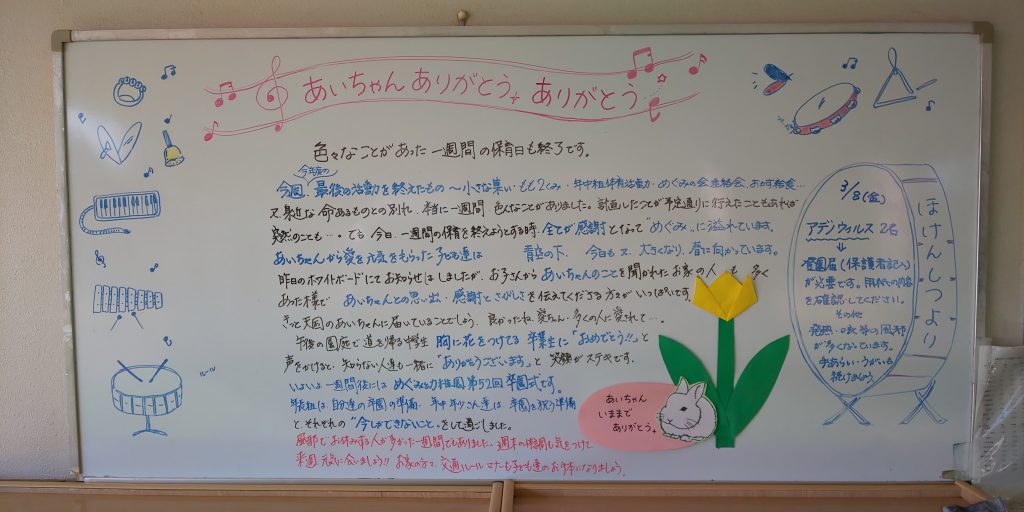 あいちゃん ありがとう ありがとう
色々なことがあった 一週間の保育日も終了です。
今年度の
今週、最後の活動を終えたもの 〜小さな集い・もちつくみ・年中組体育活動・めぐみの会連絡会、おかず給食…
又、身近な命あるものとの別れ、本当に一週間 色んなことがありました。計画したことが予定通りに行えたこともあれば
突然のことも…。でも 今日、一週間の保育を終えようとする時、全てが感謝となって"めぐみ"に溢れています。
あいちゃんから愛と元気をもらった子ども達は 青空の下、 今日も 又、大きくなり、春に向かっています。
昨日のホワイトボードにてお知らせはしましたが、お子さんからあいちゃんのことを聞かれたお家の人も多く
あった様で あいちゃんとの思い出・感謝とさびしさを伝えてくださる方々がいっぱいです。
きっと天国のあいちゃんに届いていることでしょう。良かったね、愛ちゃん・多くの人に愛されて…。
午後の園庭で道を帰る中学生 胸に花をつけてる卒業生に「おめでとう!!」と
声をかけると、知らない人達も一緒に「ありがとうございます」と 笑顔がステキです。
いよいよ一週間後には めぐみ幼稚園 第52回 卒園式です。
年長組は 自分達の卒園の準備、年中 年少さん達は 卒園を祝う準備
と、それぞれの"今しかできないこと"をして過ごしました。
風邪でお休みする人が多かった一週間でもありました。週末の体調も気をつけて
来週 元気に会いましょう!! お家の方々、交通ルール マナーも子ども達のお手本になりましょう。
ルール
あいちゃん
いままで
ありがとう
ほけんしつより
3/8(金)
アデノウィルス 2名
登園届(保護者記入)
が必要です。用紙の内容
を確認してください。
その他
発熱・咳等の風邪
が多くなっています。
手あらい・うがいを
続けましょう